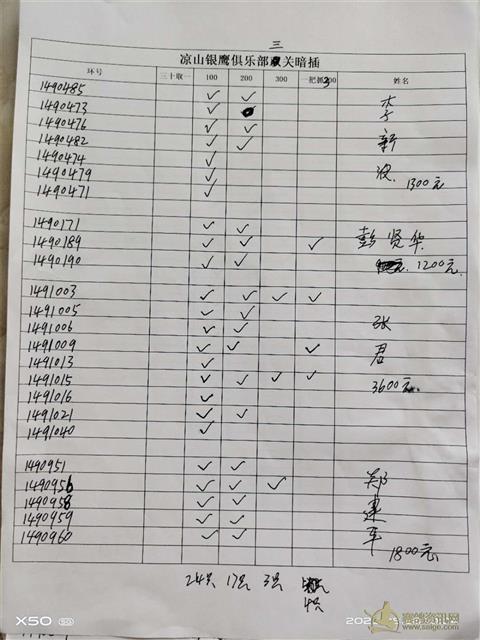 三
凉山银鹰俱乐部 关暗插
环号 三十取一 100 200 300 一把抓300 姓名
1490485 ✓ ✓
1490473 ✓ 李
1490476 ✓ ✓
1490482 ✓ ✓ 新
1490474 ✓
1490479 ✓ 波
1490471 ✓ 1300元
1490171 ✓ ✓
1490189 ✓ ✓ ✓ 彭贤华
1490190 ✓ ✓ 1200元
1491003 ✓ ✓ ✓ ✓
1491005 ✓ ✓
1491006 ✓ ✓ 张
1491009 ✓ ✓ ✓ 君
1491013 ✓
1491015 ✓ ✓ ✓ ✓ 3600元
1491016 ✓
1491021 ✓ ✓
1491040 ✓
1490951 ✓ ✓
1490956 ✓ ✓ ✓ 郑
1490958 ✓ ✓ 建
1490959 ✓ ✓
1490960 ✓ ✓ 军
1800元
24只 17只 3只
4只
X50 5G
www.saige.com